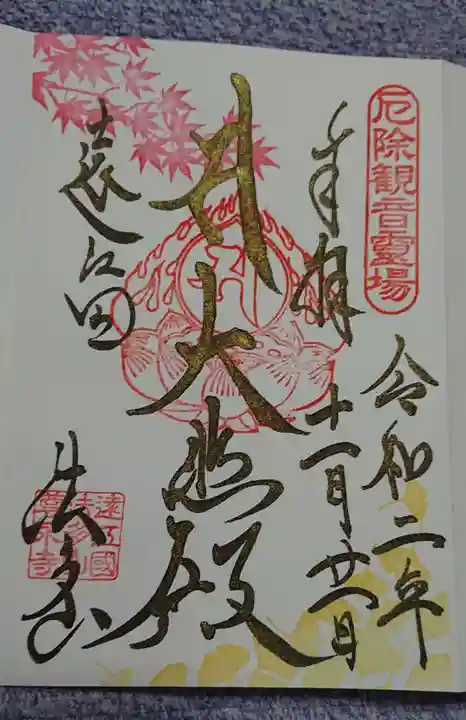 厄除観音霊場
令和二年
奉拝
十一月廿一日
大悲殿
遠江国
法多山
遠江國
法多山
尊永寺